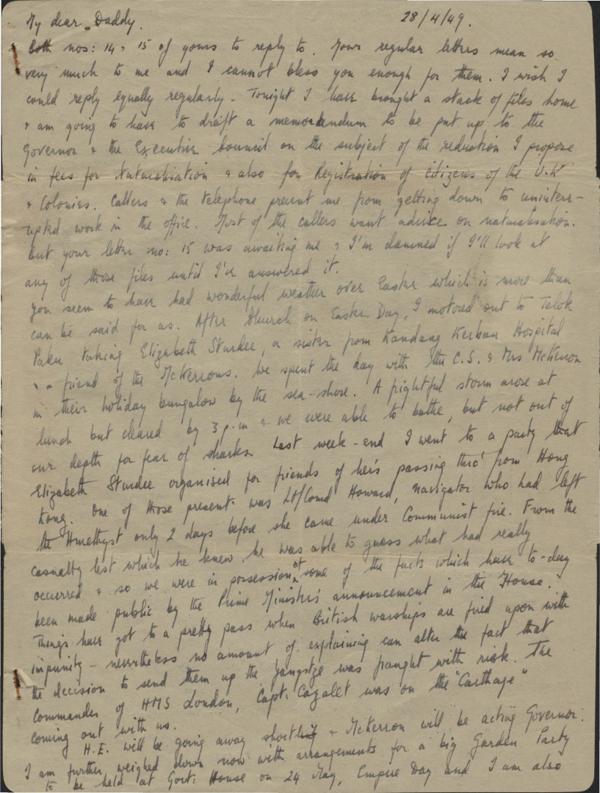 My dear Daddy. 28/4/49.
Both nos: 14 & 15 of yours to reply to. Your regular letters mean so
very much to me and I cannot bless you enough for them. I wish I
could reply equally regularly. Tonight I have brought a stack of files home
& am going to have to draft a memorandum to be put up to the
Governor & the Executive Council on the subject of the reduction I propose
in fees for Naturalisation & also for Registration of Citizens of the U.K
& Colonies. Callers & the telephone prevent me from getting down to uninterr-
upted work in the office. Most of the callers want advice on naturalisation.
But your letter no: 15 was awaiting me & I'm damned if I'll look at
any of those files until I've answered it.
You seem to have had wonderful weather over Easter which is more than
can be said for us. After Church on Easter Day, I motored out to Telok
Paku taking Elizabeth Sturdee, a sister from Kandang Kerbau Hospital
& a friend of the McKerrons. We spent the day with the C.S. & Mrs McKerron
in their holiday bungalow by the sea-shore. A frightful storm arose at
lunch but cleared by 3 p.m & we were able to bathe, but not out of
our depth for fear of sharks. Last week-end I went to a party that
Elizabeth Sturdee organised for friends of her's passing thro' from Hong
Kong. One of those present was Lt/Comd Howard, navigator who had left
the Amethyst only 2 days before she came under Communist fire. From the
casualty list which he knew he was able to guess what had really
occurred & so we were in possession of some of the facts which have to-day
been made public by the Prime Minister's announcement in the House.
Things have got to a pretty pass when British warships are fired upon with
impunity - nevertheless no amount of explaining can alter the fact that
the decision to send them up the Yangtze was fraught with risk. The
commander of HMS London, Capt. Cazalet was on the "Carthage"
coming out with us.
H.E. will be going away shortly & McKerron will be acting Governor.
I am further weighed down now with arrangements for a big Garden Party
to be held at Govt. House on 24 May, Empire Day and I am also